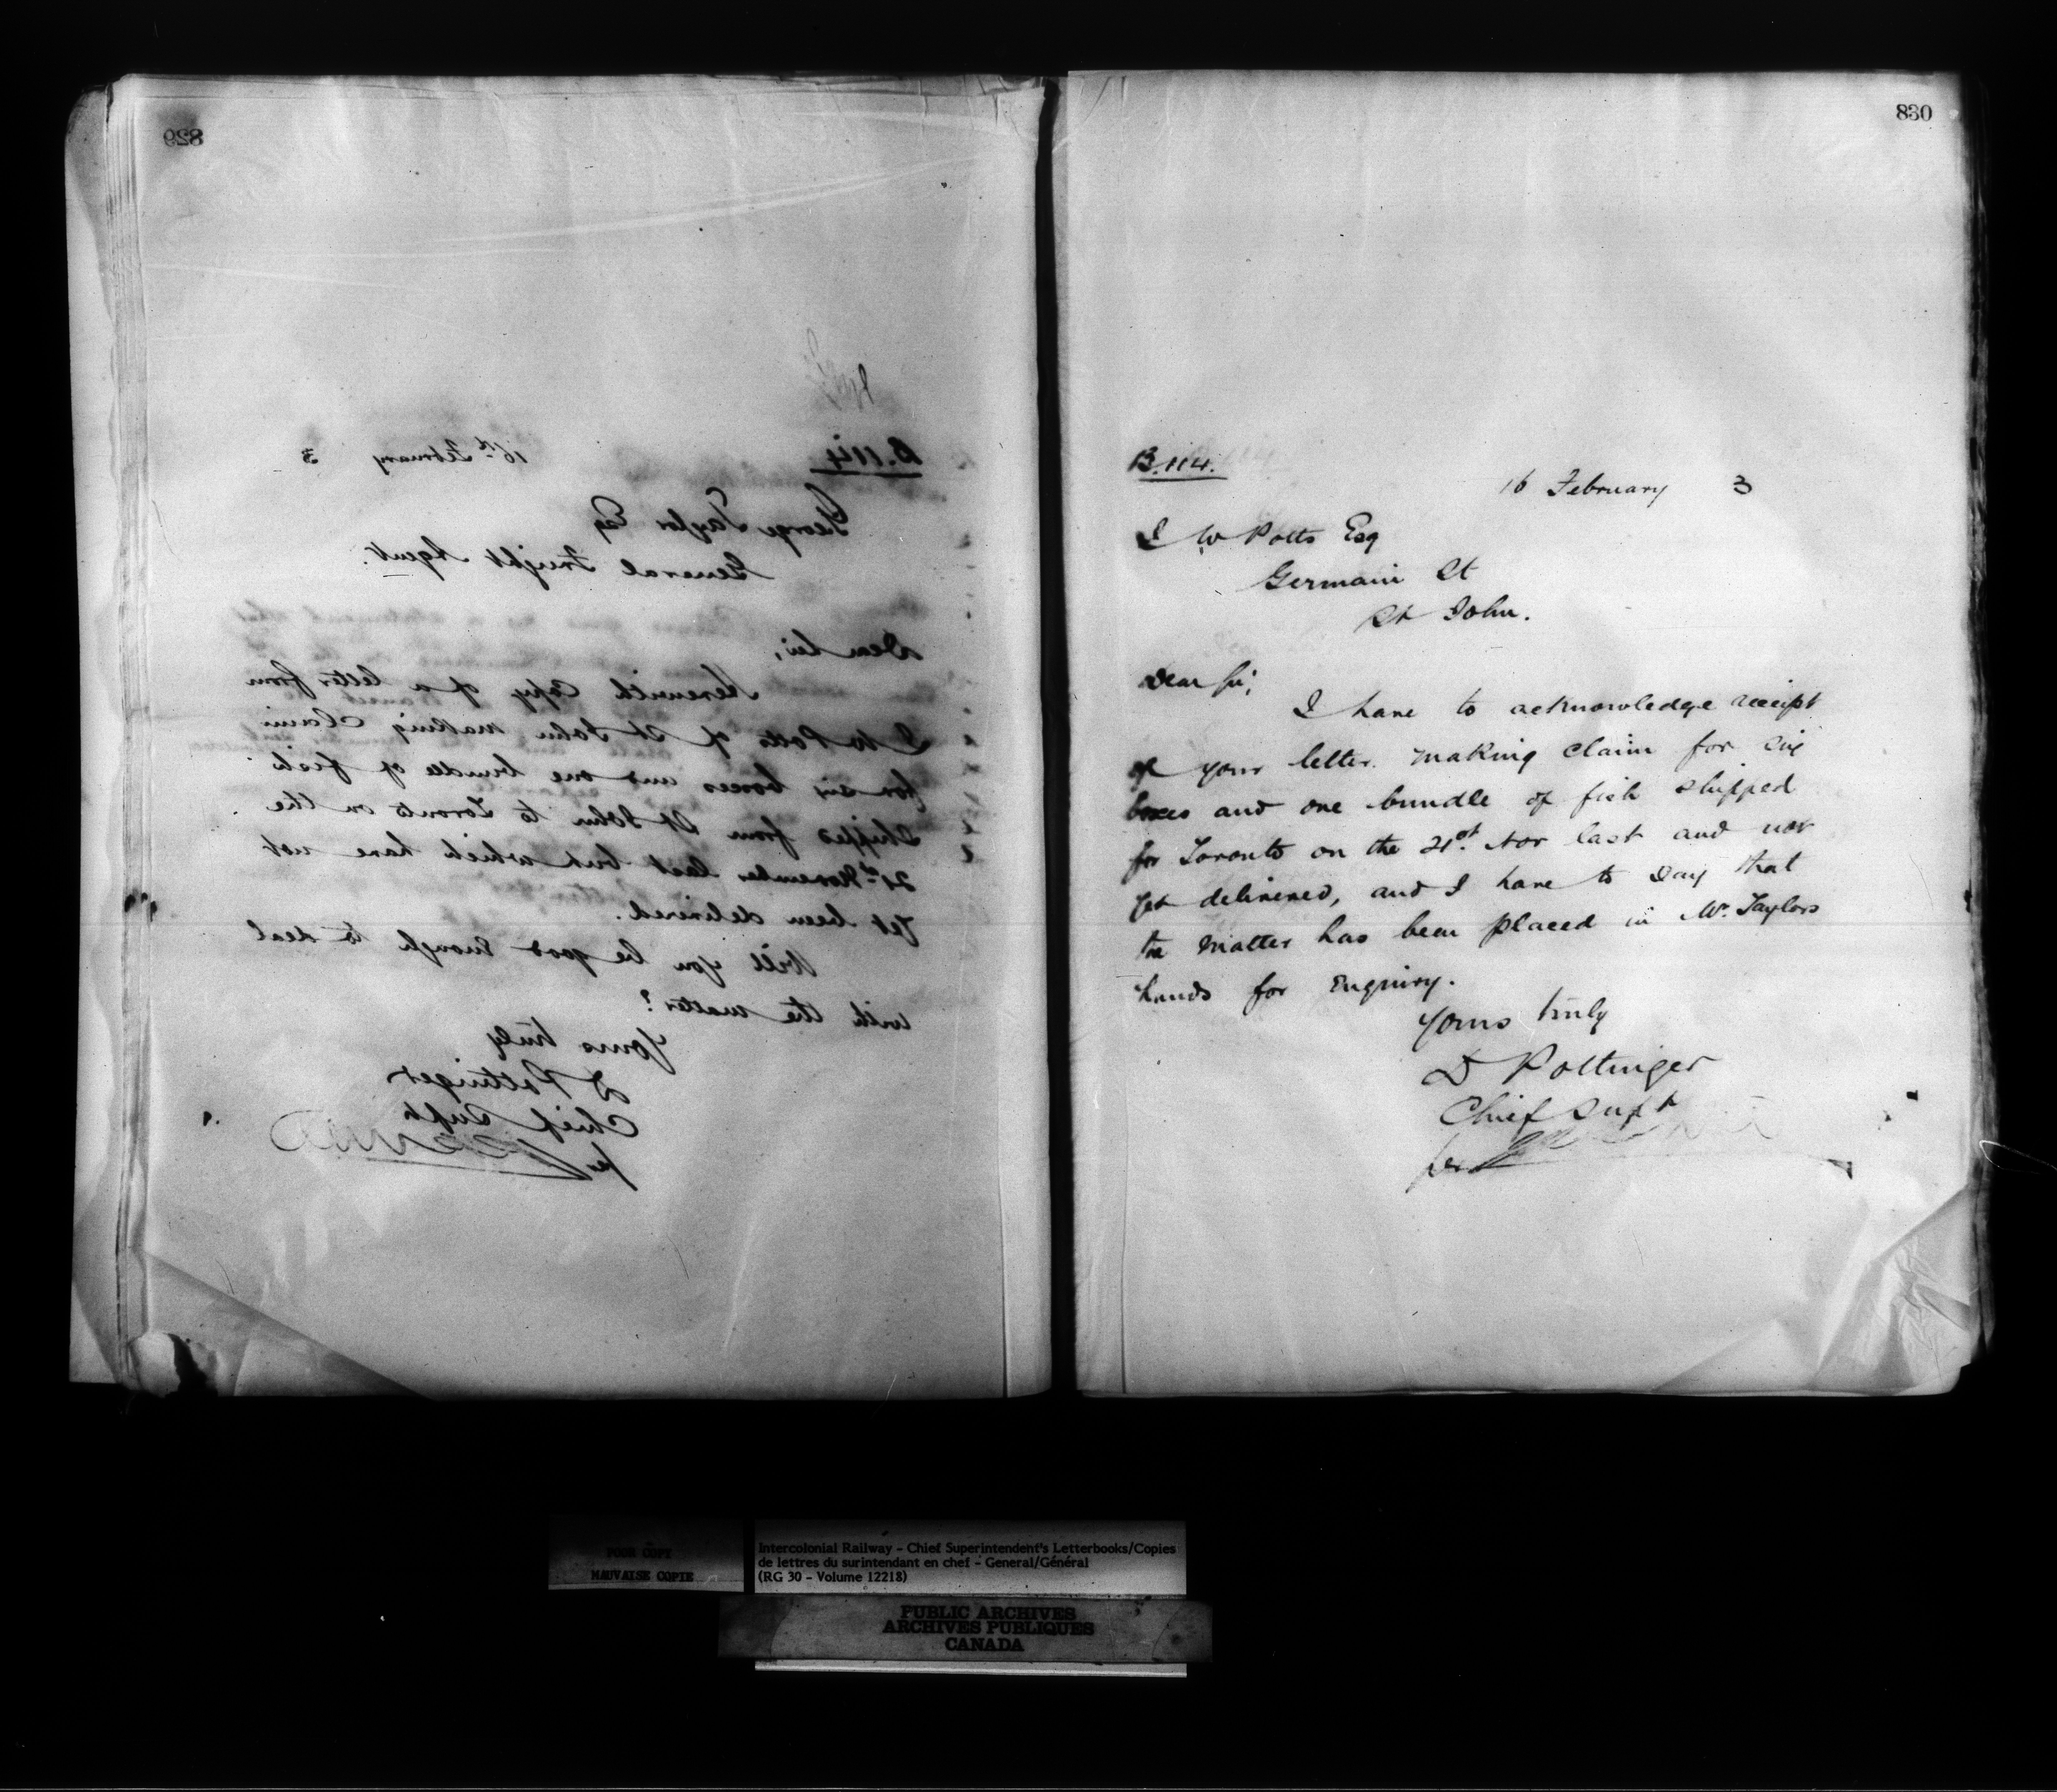 829
B.114
16th February 3
George Taylor Esq
General Freight Agent.
Dear Sir,
Herewith Copy of a letter from
I W Potts of St John making claim
for six boxes and one bundle of fish
shipped from St John to Toronto on the
21st November last but which have not
yet been delivered.
Will you be good enough to deal
with the matter?
Yours truly
D Pottinger
Chief Supt
per
830
B.114.
16 February 3
I W Potts Esq
Germain St
St John.
Dear Sir,
I have to acknowledge receipt
of your letter making claim for six
boxes and one bundle of fish shipped
for Toronto on the 21st Nov last and not
yet delivered, and I have to say that
the matter has been placed in Mr. Taylors
hands for enquiry.
Yours truly
D Pottinger
Chief Supt
per
POOR COPY
MAUVAISE COPIE
Intercolonial Railway - Chief Superintendent's Letterbooks/Copies
de lettres du surintendant en chef - General/Général
(RG 30 - Volume 12218)
PUBLIC ARCHIVES
ARCHIVES PUBLIQUES
CANADA